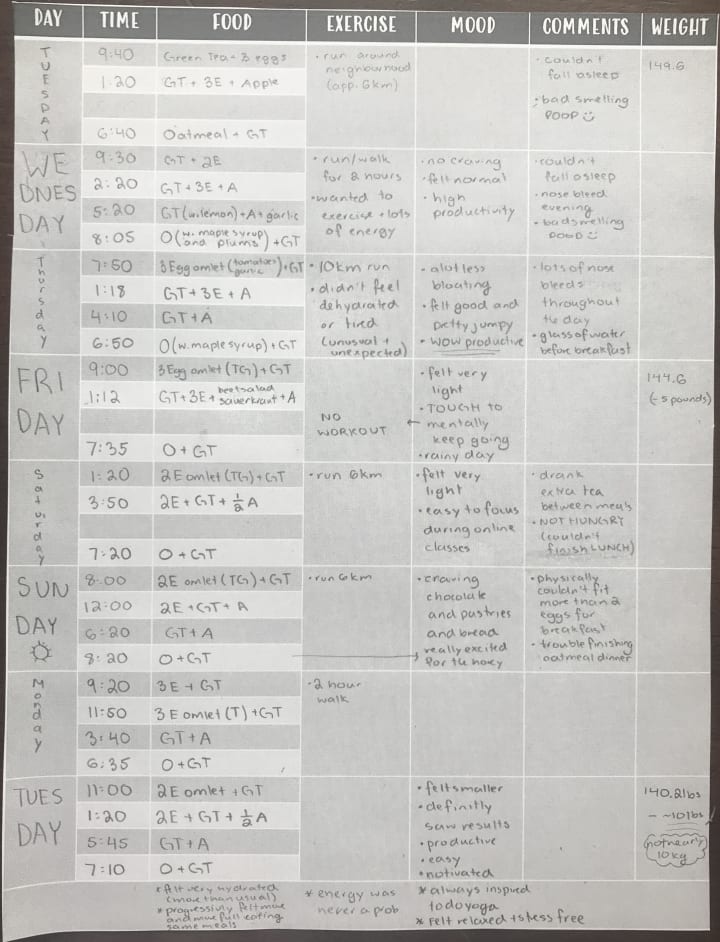 DAY TIME FOOD EXERCISE MOOD COMMENTS WEIGHT
TUESDAY
9:40 Green Tea - 3 eggs
1:20 GT + 3E + Apple
6:40 Oatmeal + GT
• run around
neighbourhood
(app. 6km)
• couldn't
fall asleep
• bad smelling
poop ☺
149.6
WE
DNES
DAY
9:30 GT + 2E
2:20 GT + 3E + A
5:20 GT (w. lemon) + A + garlic
8:05 O (w. maple syrup and plums) + GT
• run/walk
for 2 hours
• wanted to
exercise + lots
of energy
• no craving
• felt normal
• high
productivity
• couldn't
fall asleep
• nose bleed
evening
• bad smelling
poop ☺
Thursday
7:50 3 Egg omlet (tomatoes garlic) + GT
1:18 GT + 3E + A
4:10 GT + A
6:50 O (w. maple syrup) + GT
• 10km run
• didn't feel
dehydrated
or tired
(unusual +
unexpected)
• alot less
bloating
• felt good and
pretty jumpy
• WOW productive
• lots of nose
bleeds
throughout
the day
• glass of water
before breakfast
FRI
DAY
9:00 3 Egg omlet (TG) + GT
1:12 GT + 3E + beet salad sauerkraut + A
7:35 O + GT
NO
WORKOUT
• felt very
light
• TOUGH to
← mentally
keep going
• rainy day
144.6
(-5 pounds)
Saturday
1:20 2E omlet (TG) + GT
3:50 2E + GT + ½ A
7:20 O + GT
• run 6km
• felt very
light
• easy to focus
during online
classes
• drank
extra tea
between meals
• NOT HUNGRY
(couldn't
finish LUNCH)
SUN
DAY
8:00 2E omlet (TG) + GT
12:00 2E + GT + A
6:20 GT + A
8:20 O + GT
• run 6km
• craving
chocolate
and pastries
and bread
really excited
for the honey
• physically
couldn't fit
more than 2
eggs for
breakfast
• trouble finishing
oatmeal dinner
Monday
9:20 3E + GT
11:50 3E omlet (T) + GT
3:40 GT + A
6:35 O + GT
• 2 hour
walk
TUES
DAY
11:00 2E omlet + GT
1:20 2E + GT + ½ A
5:45 GT + A
7:10 O + GT
• felt smaller
• definitly
saw results
• productive
• easy
• motivated
140.2lbs
- ~10lbs
not nearly
10kg
* felt very hydrated
(more than usual)
* progressivly felt more
and more full eating
same meals
* energy was
never a prob
* always inspired
to do yoga
* felt relaxed + stress free